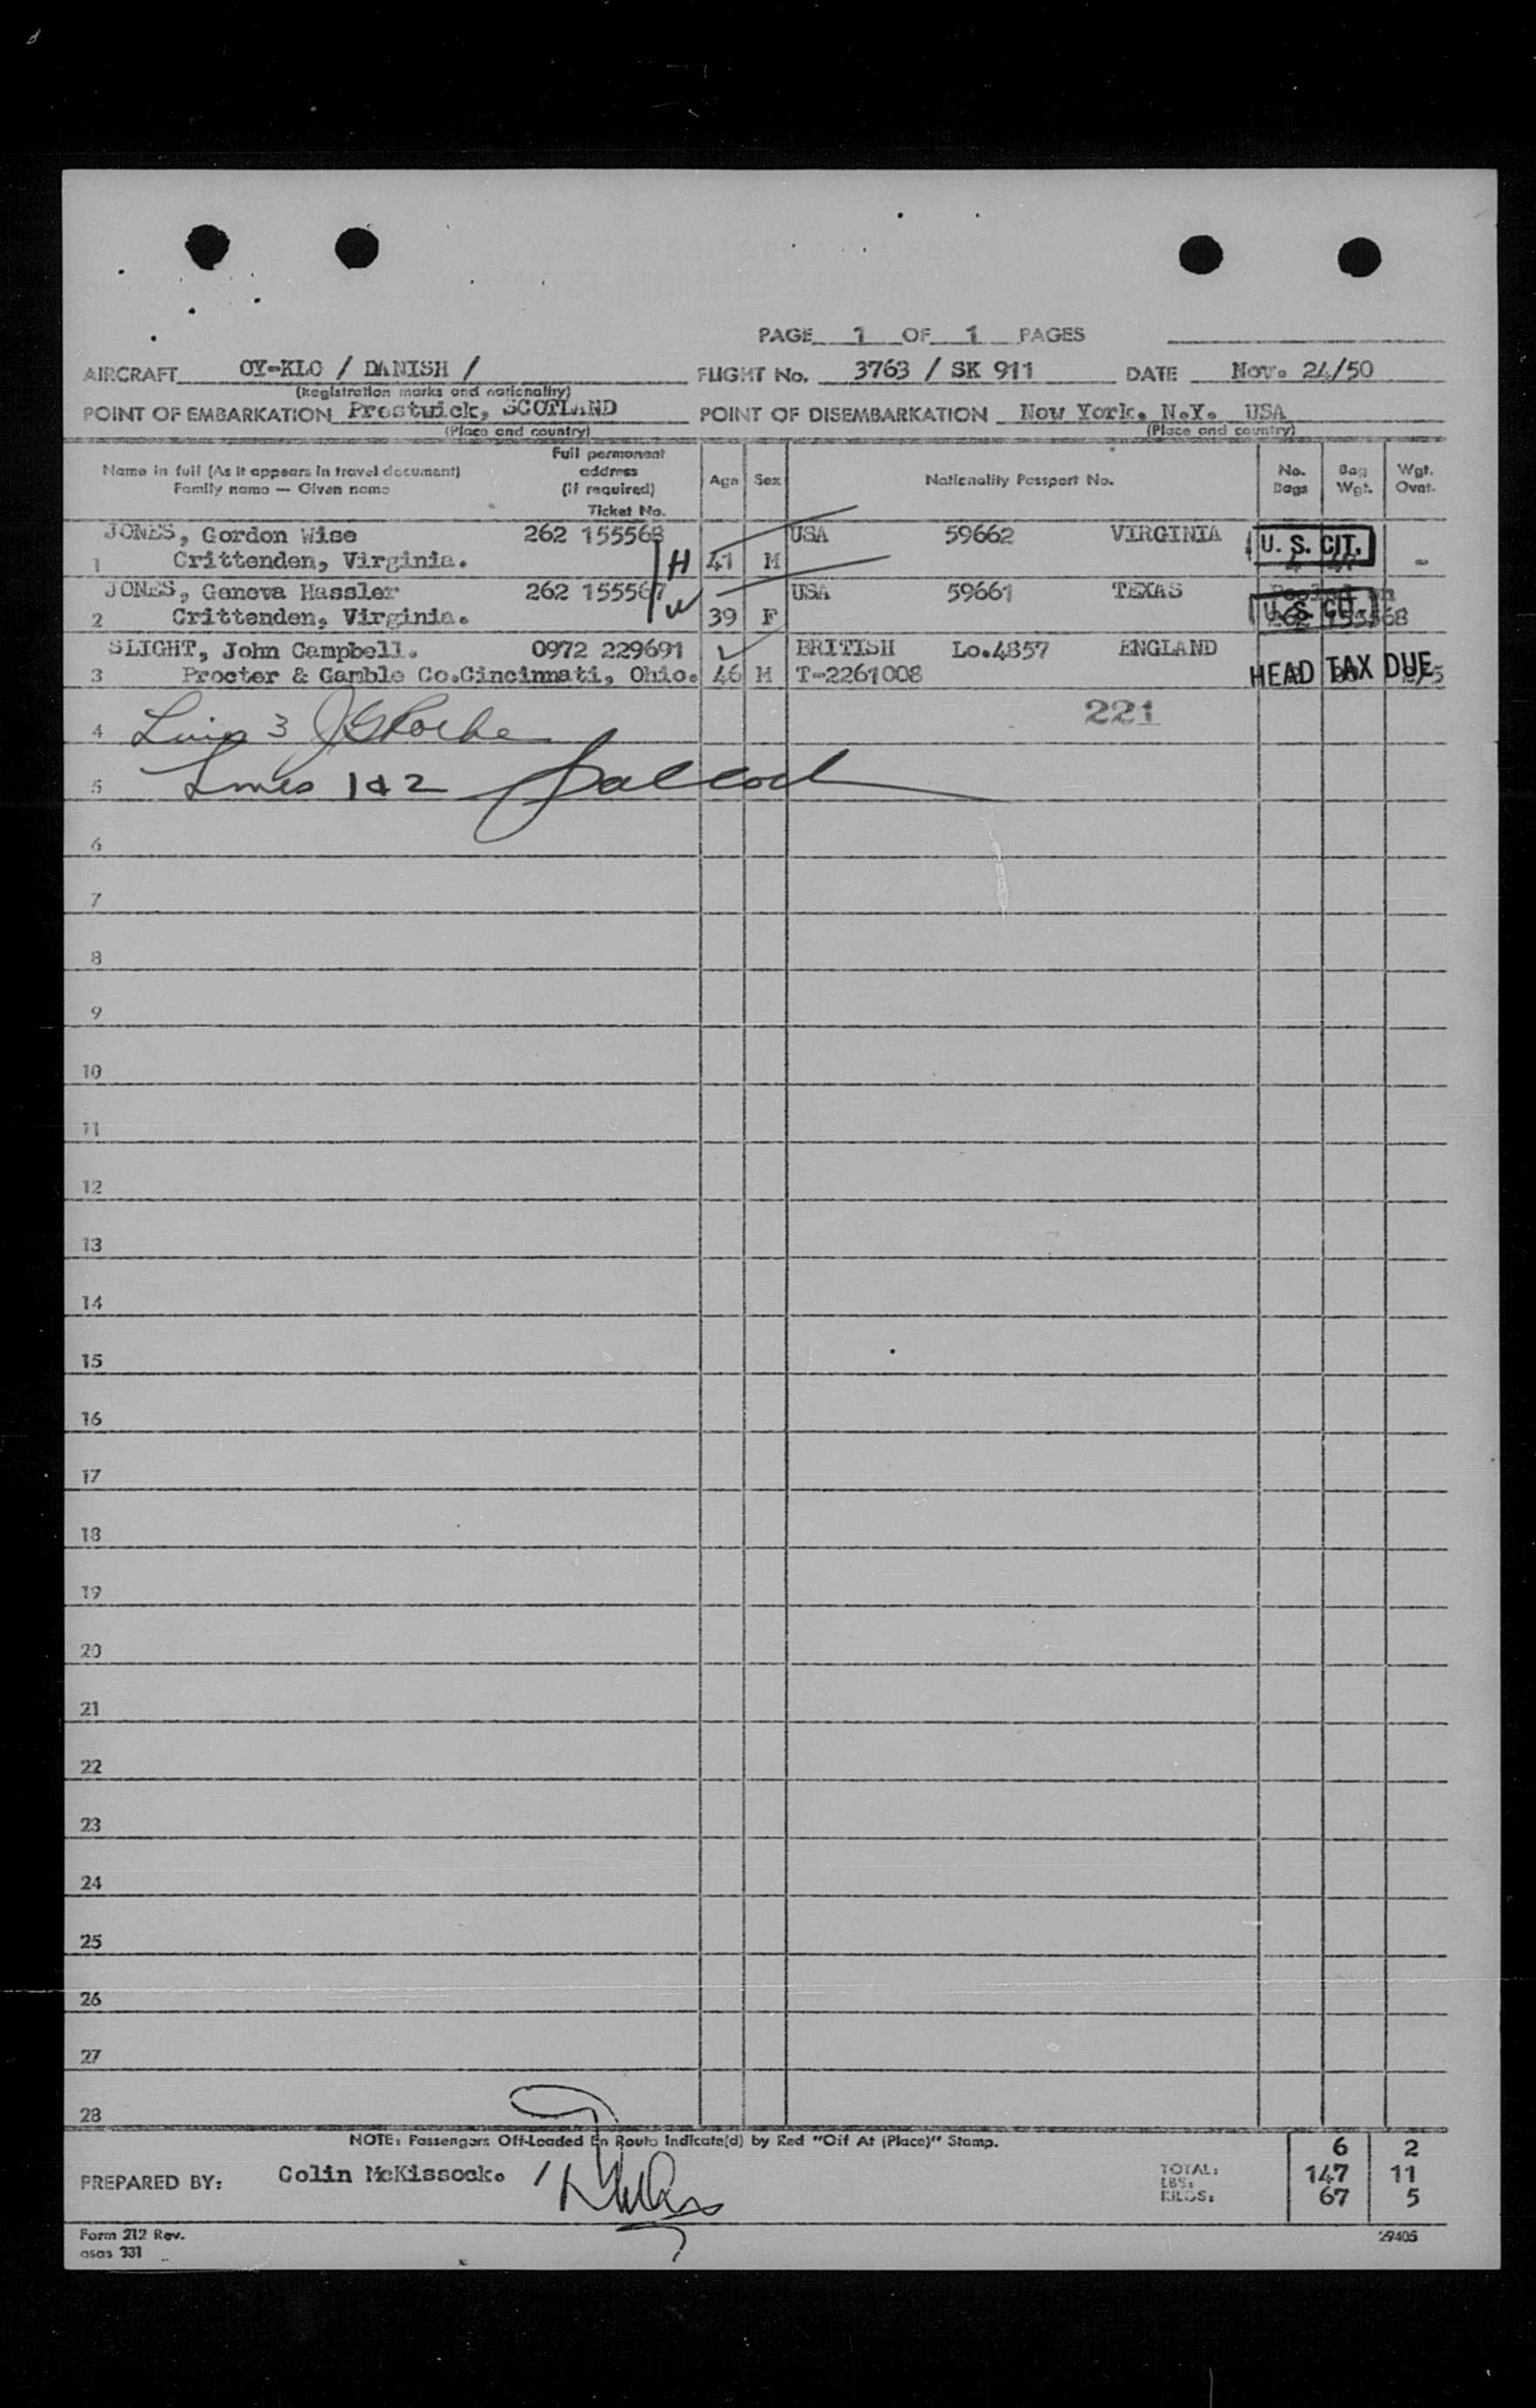 PAGE 1 OF 1 PAGES
AIRCRAFT OY-KLO / DANISH / FLIGHT No. 3763 / SK 911 DATE Nov. 24/50
(Registration marks and nationality)
POINT OF EMBARKATION Prestwick, SCOTLAND POINT OF DISEMBARKATION New York, N.Y. USA
(Place and country) (Place and country)
Name in full (As it appears in travel document) Family name — Given name Full permanent address (if required) Ticket No. Age Sex Nationality Passport No. No. Bags Bag Wgt. Wgt. Ovat.
JONES, Gordon Wise 262 155568 USA 59662 VIRGINIA U. S. CIT.
1 Crittenden, Virginia. H 41 M -
JONES, Geneva Hassler 262 155567 USA 59661 TEXAS
2 Crittenden, Virginia. W 39 F U. S. CIT.
SLIGHT, John Campbell. 0972 229691 BRITISH Lo.4857 ENGLAND
3 Procter & Gamble Co.Cincinnati, Ohio. 46 M T-2261008 HEAD TAX DUE
221
4 Line 3
5 Lines 1 & 2
6
7
8
9
10
11
12
13
14
15
16
17
18
19
20
21
22
23
24
25
26
27
28
NOTE: Passengers Off-Loaded En Route Indicate(d) by Red "Off At (Place)" Stamp.
6 2
PREPARED BY: Colin McKissock. / TOTAL: 147 11
LBS:
KILOS: 67 5
Form 212 Rev. 29405
asas 331